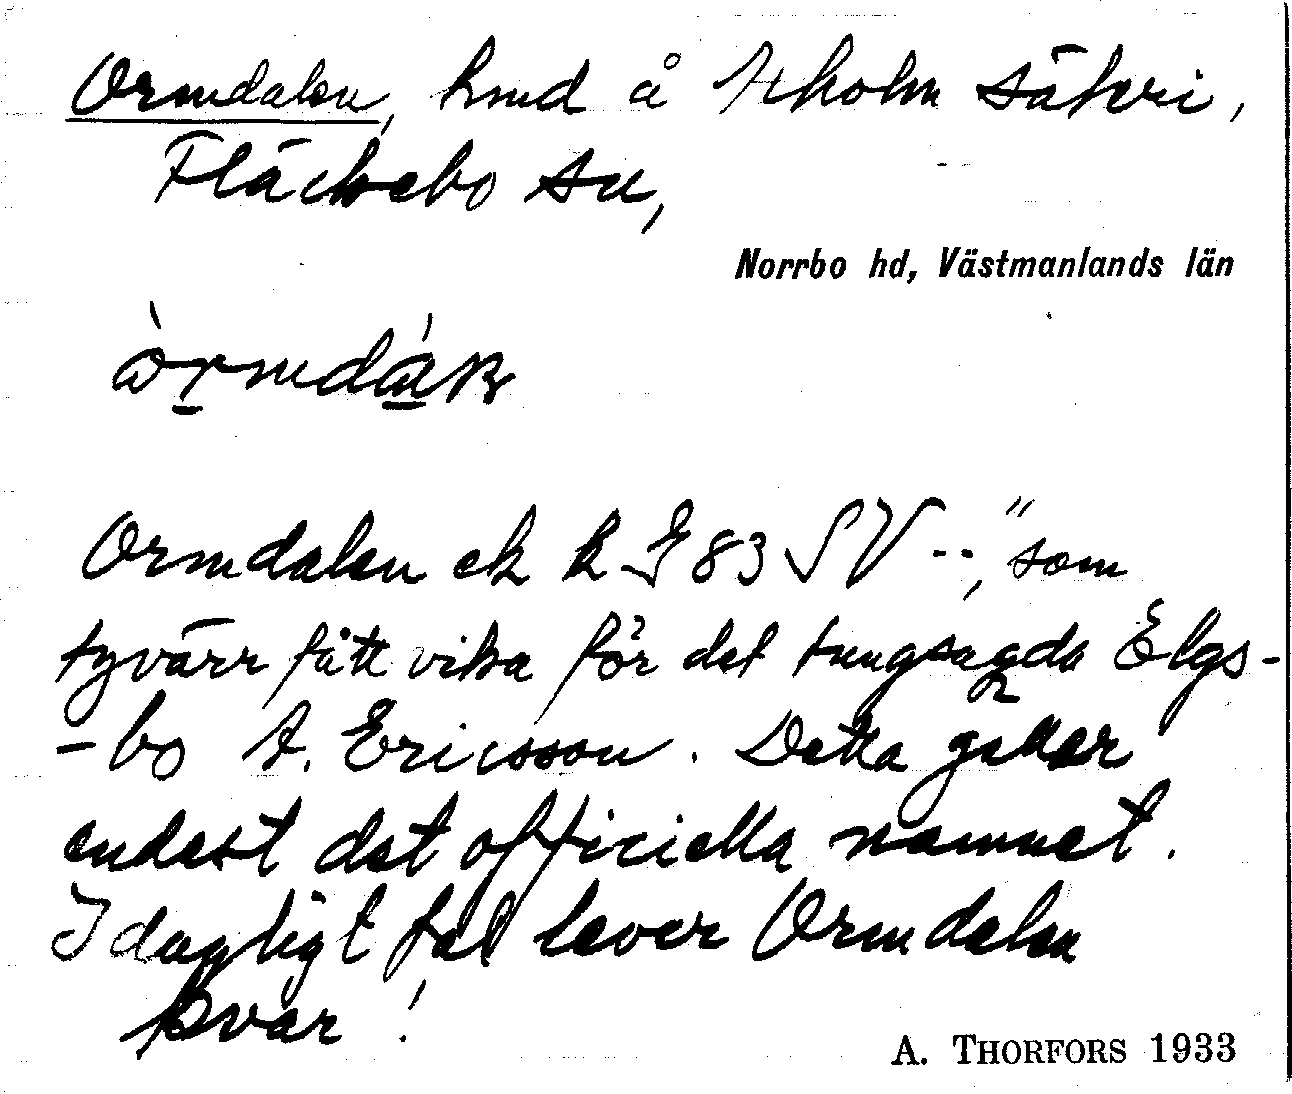 Ormdalen, hmd å Stholm säteri,
Fläckebo sn,
Norrbo hd, Västmanlands län
òrmdál
Ormdalen ek k 83 SV --, "som
tyvärr fått vika för det tungsagda Elgs-
-bo A. Ericsson. Detta gäller
endast det officiella namnet.
I dagligt tal lever Ormdalen
kvar!
A. THORFORS 1933